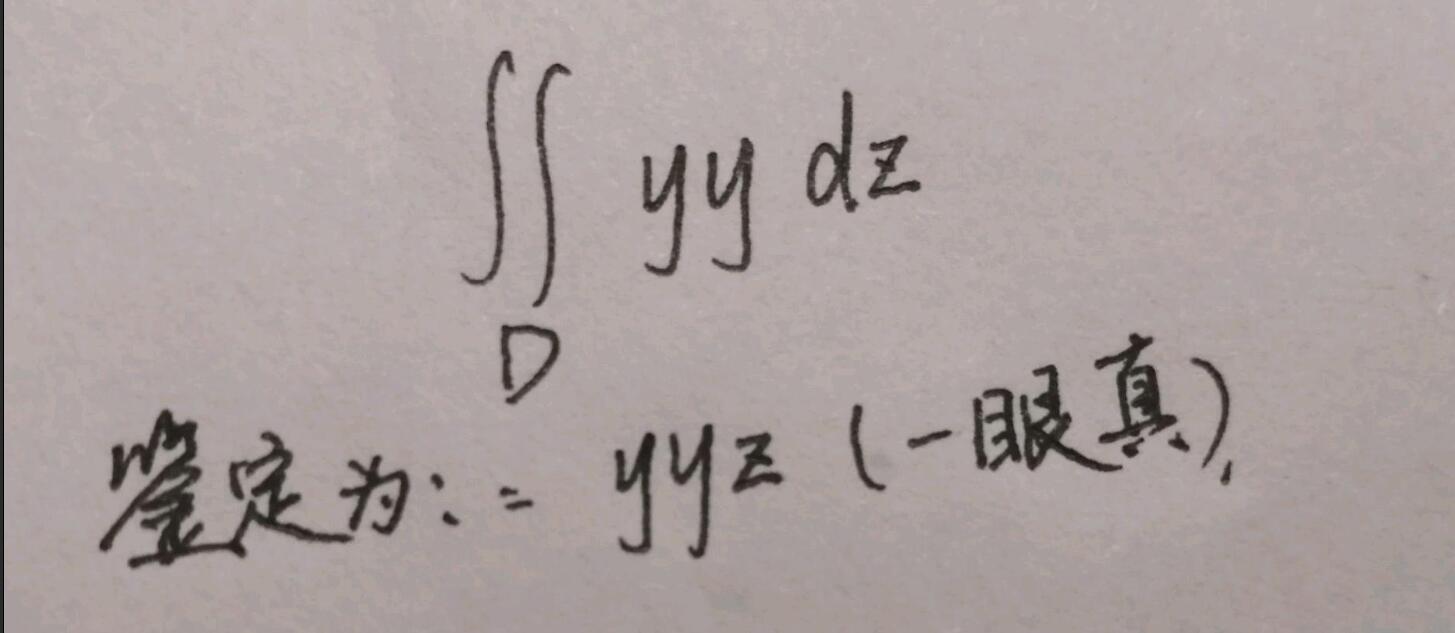 ∬ yy dz
D
鉴定为:= yyz (一眼真).